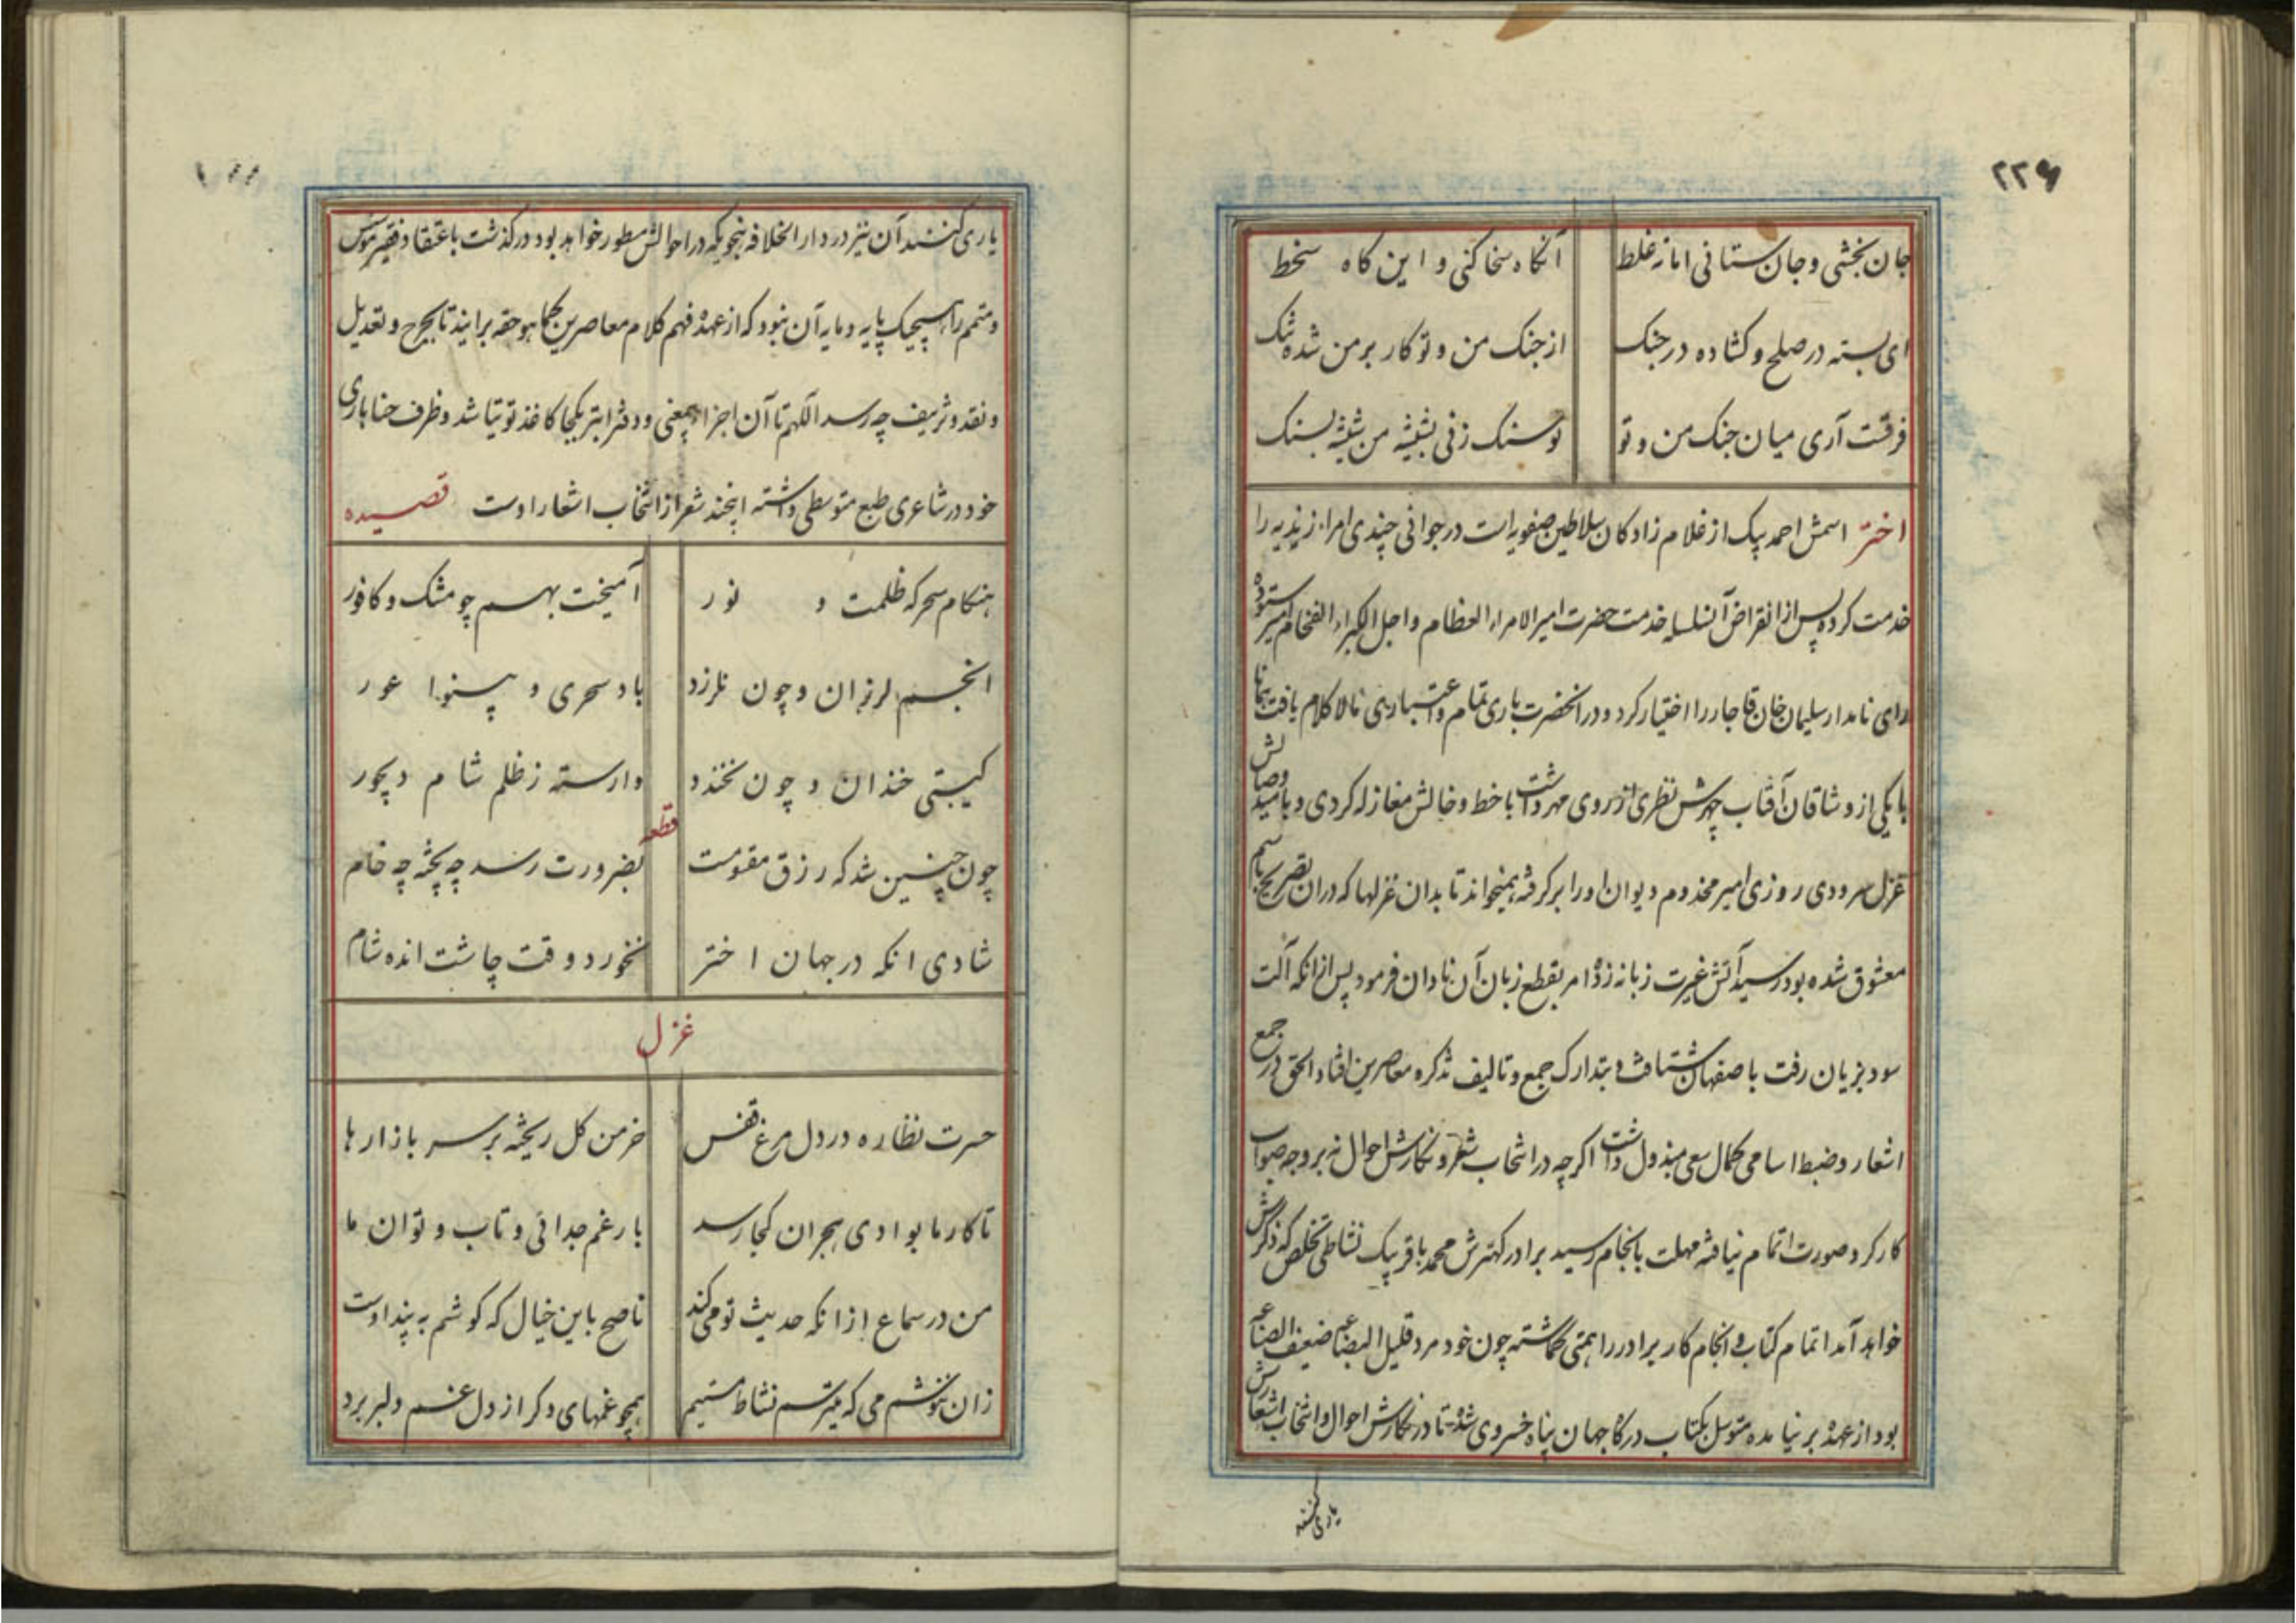 ۲۲۶
جان بخشی و جان ستانی اما نه غلط
آنگاه سخا کنی و این گاه سخط
ای بسته در صلح و کشاده در جنک
از جنک من و تو کار بر من شده تنک
فرقست آری میان جنک من و تو
تو سنک زنی بشیشه من شیشه بسنک
اختر اسمش احمد بیک از غلام زادکان سلاطین صفویه است در جوانی چندی امراء زندیه را
خدمت کرده پس از انقراض آنسلسله خدمت حضرت امیر الامراء العظام و اجل الکبراء الفخام امیر ستوده
رای نامدار سلیمان خان قاجار را اختیار کرد و در انحضرت باری تمام و اعتباری مالا کلام یافت همانا
با یکی از وشاقان آفتاب چهرش نظری از روی مهر داشت با خط و خالش مغازله کردی و بامید وصالش
غزل سرودی روزی امیر مخدوم دیوان او را بر کرفته میخواند تا بدان غزلها که در ان تصریح باسم
معشوق شده بود رسید آتش غیرت زبانه زد و امر بقطع زبان آن نادان فرمود پس از انکه آلت
سود بزیان رفت باصفهان شتافت و بتدارک جمع و تالیف تذکره معاصرین افتاد الحق در جمع
اشعار و ضبط اسامی کمال سعی مبذول داشت اکرچه در انتخاب شعر و نکارش احوال نه بر وجه صواب
کار کرد صورت اتمام نیافته مهلت بانجام رسید برادر کهترش محمد باقر بیک نشاطی تخلص که ذکرش
خواهد آمد اتمام کتاب و انجام کار برادر را همتی کماشته چون خود مرد قلیل البضاعه ضعیف الصناعه
بود از عهده بر نیامده متوسل بکتاب درکاه جهان پناه خسروی شد تا در نکارش احوال و انتخاب اشعارش
یاری کنند
یاری کنند آن نیز در دار الخلافه بنحویکه در احوالش مسطور خواهد بود در کذشت باعتقاد فقیر موسس
و متمم را هیچیک پایه و مایه آن نبود که از عهده فهم کلام معاصرین کما هو حقه برایند تا بجرح و تعدیل
و نقد و تزییف چه رسد اللهم تا آن اجزاء بیمعنی و دفتر ابتر یکجا کاغذ توتیا شد و ظرف حنا باری
خود در شاعری طبع متوسطی داشته اینچند شعر از انتخاب اشعار اوست قصیده
هنکام سحر که ظلمت و نور
آمیخت بهم چو مشک و کافور
انجم لرزان و چون نلرزد
باد سحری و بینوا عور
کیتی خندان و چون نخندد
وارسته ز ظلم شام دیجور
قطعه
چون چنین شد که رزق مقسومست
بضرورت رسد چه پخته چه خام
شادی انکه در جهان اختر
نخورد وقت چاشت انده شام
غزل
حسرت نظاره در دل مرغ قفس
خرمن کل ریخته بر سر بازارها
تا کار ما بوادی هجران کجا رسد
بار غم جدائی و تاب و توان ما
من در سماع از انکه حدیث تو می کند
ناصح باین خیال که کوشم به پند اوست
زان ننوشم می که میترسم نشاط مستیم
همچو غمهای دکر از دل غم دلبر برد